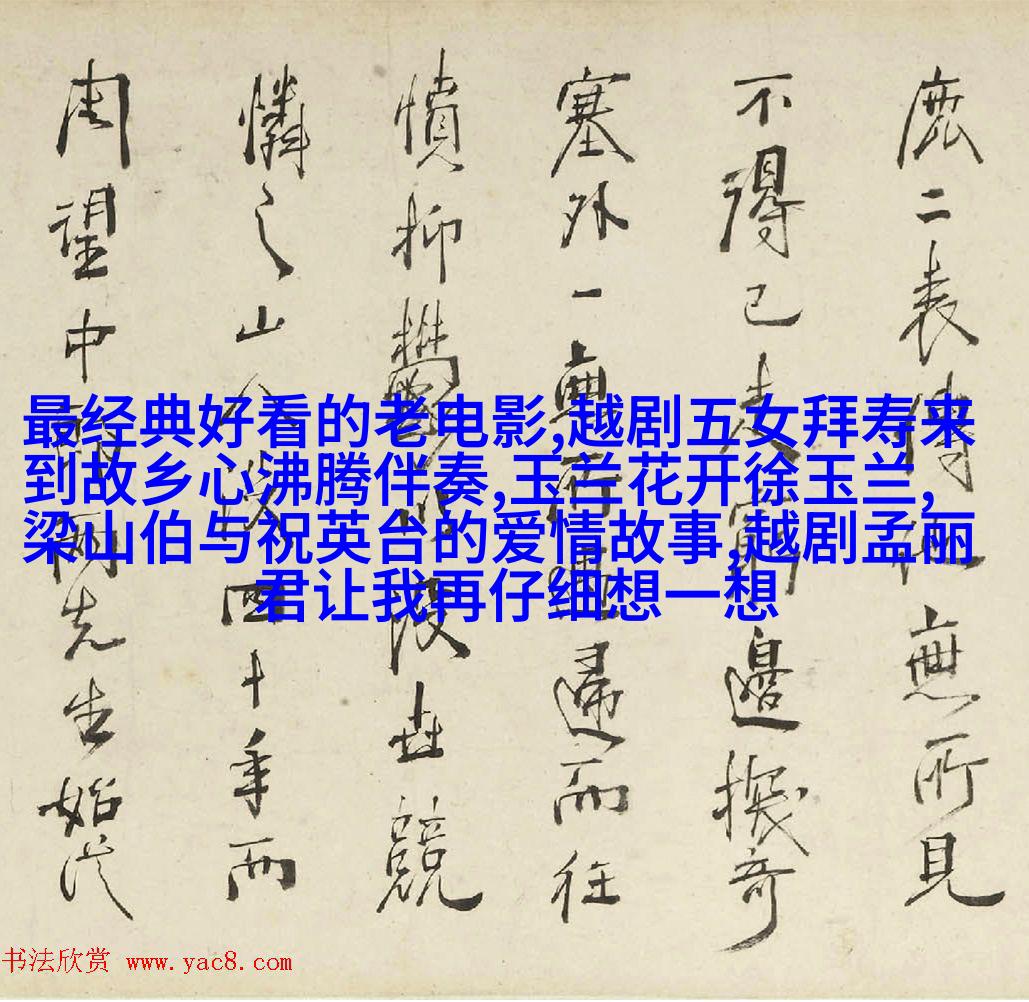 最经典好看的老电影,越剧五女拜寿来
到故乡心沸腾伴奏,玉兰花开徐玉兰,
梁山伯与祝英台的爱情故事,越剧孟丽
君让我再仔细想一想
二表傳無所見
不得已走窮邊奇
塞外一無所遇歸而往
憤抑鬱世競
憐之山後四十年而
周望中郎兩先生始
书法欣赏 www.yac8.com